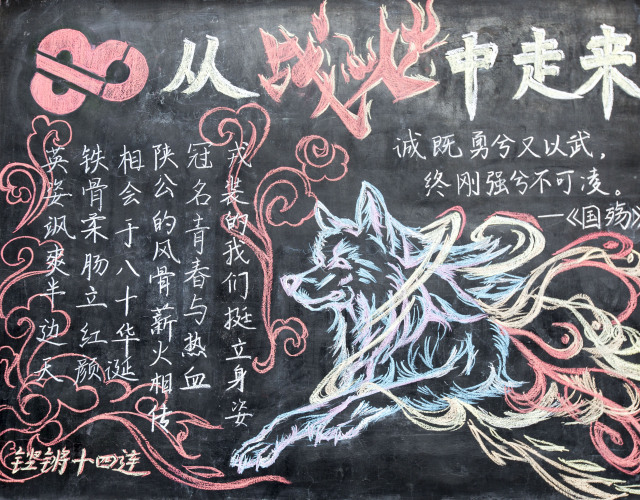 从战火中走来
诚既勇兮又以武，
终刚强兮不可凌。
—《国殇》
戎装的我们挺立身姿
冠名青春与热血
陕公的风骨薪火相传
相会于八十华诞
铁骨柔肠立红颜
英姿飒爽半边天
铿锵十四连